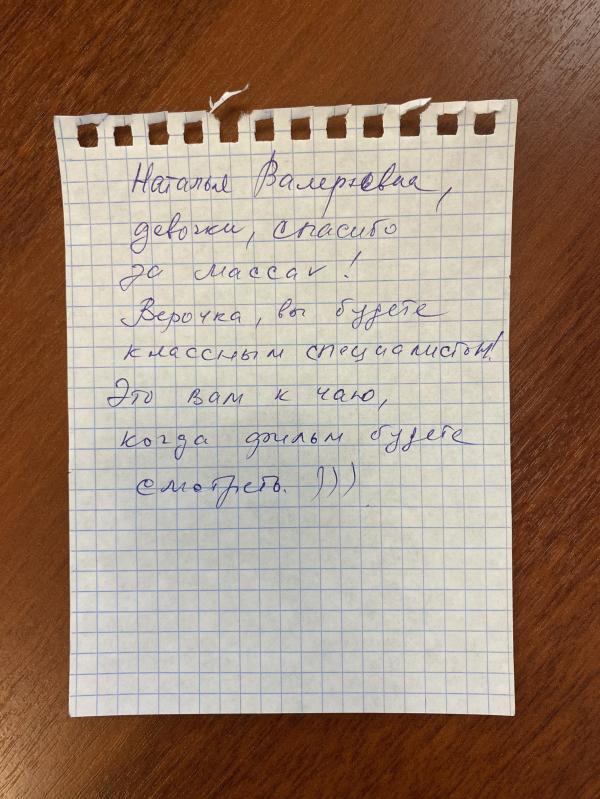 Наталья Валерьевна,
девочки, спасибо
за массаж!
Верочка, вы будете
классным специалистом!
Это вам к чаю,
когда фильм будете
смотреть. )))